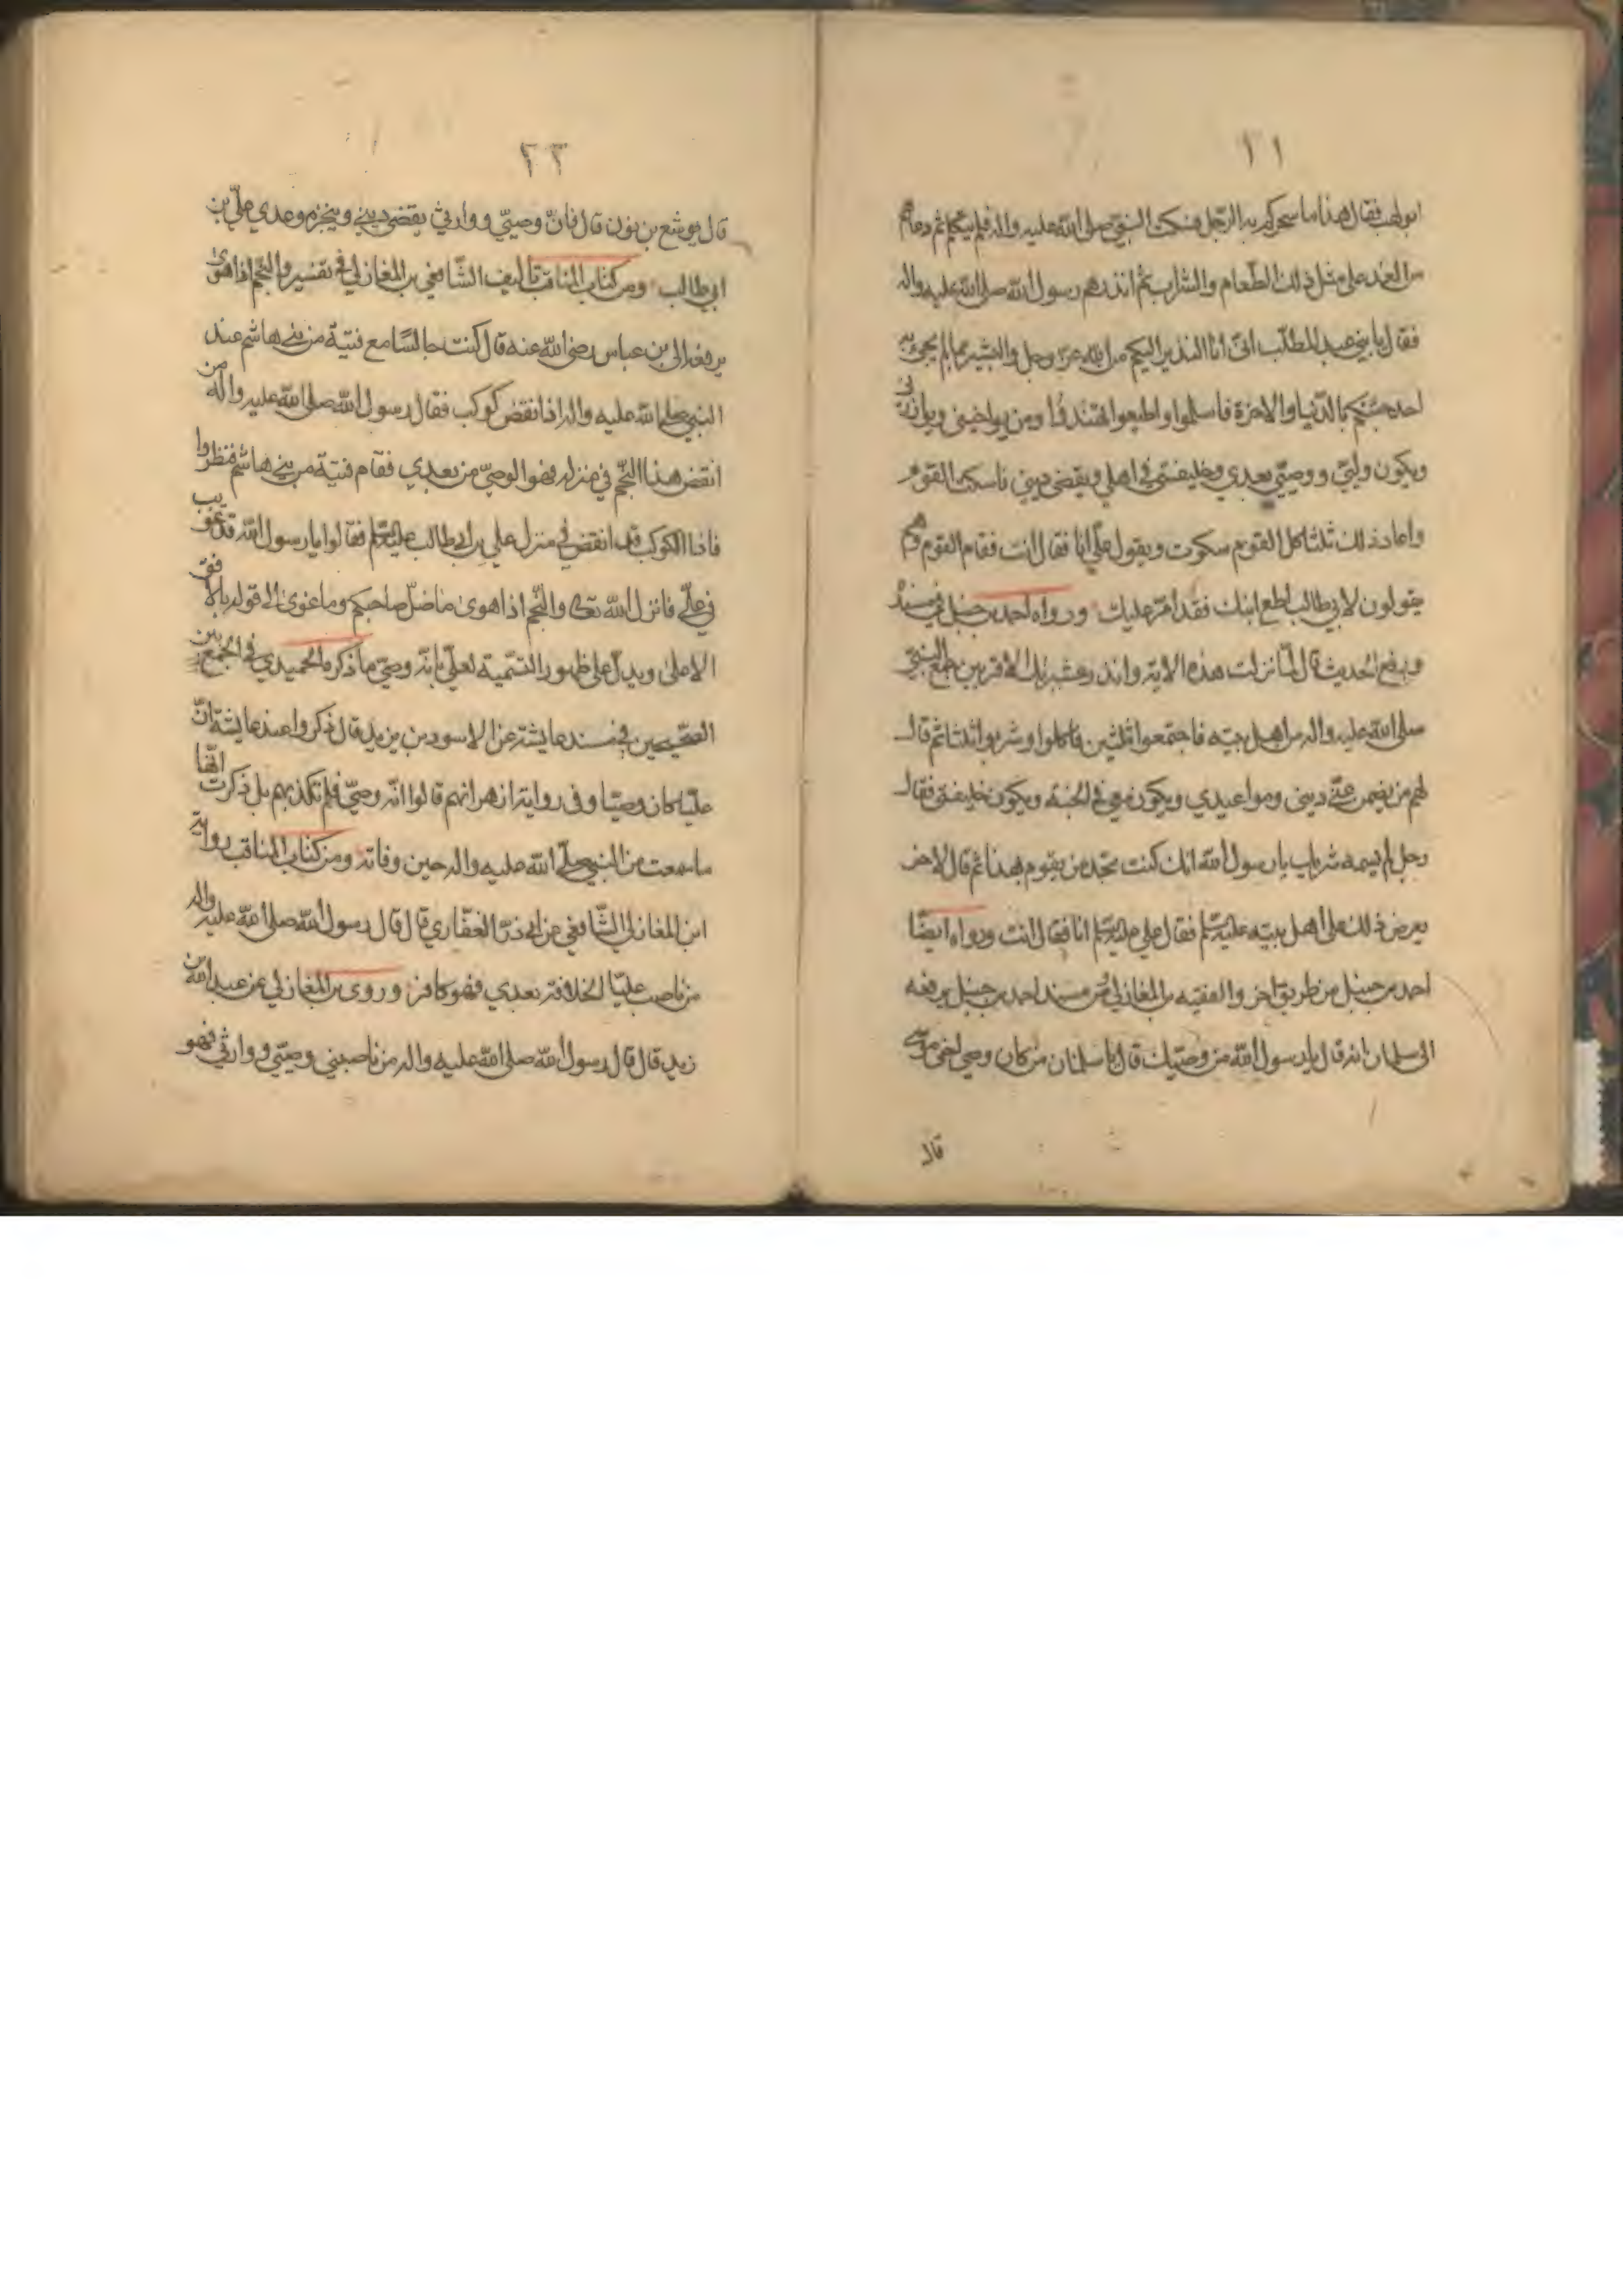 ١١
ابولهب فقال لهذا ما سحركم به الرجل فسكت النبي صلى الله عليه واله فلم يتكلم ثم دعاهم
من الغد على مثل ذلك الطعام والشراب ثم انذرهم رسول الله صلى الله عليه واله
فقال يا بني عبد المطلب انى انا النذير اليكم من الله عز وجل والبشير بما لم يجئ به
احد جئتكم بالدنيا والاخرة فاسلموا واطيعوا تهتدوا ومن يواخيني ويوازرني
ويكون وليي ووصيي بعدي وخليفتي في اهلي ويقضى ديني فاسكت القوم
واعاد ذلك ثلثا كل القوم سكوت ويقول علي انا فقال انت فقام القوم وهم
يقولون لابي طالب اطع ابنك فقد امر عليك ورواه احمد بن حنبل في مسنده
ويرفع الحديث قال لما نزلت هذه الاية وانذر عشيرتك الاقربين جمع النبي
صلى الله عليه واله من اهل بيته فاجتمعوا ثلثين فاكلوا وشربوا ثلثا ثم قال
لهم من يضمن عني ديني ومواعيدي ويكون معي في الجنة ويكون خليفتى فقال
رجل لم يسمه شريك يا رسول الله انك كنت تجد من يقوم بهذا ثم قال الاخر
يعرض ذلك على اهل بيته عليهم السلم فقال علي عليه السلم انا فقال انت ورواه ايضا
احمد بن حنبل من طريق اخر والفقيه بن المغازلي من مسند احمد بن حنبل يرفعه
الى سلمان انه قال يا رسول الله من وصيك قال يا سلمان من كان وصي اخي موسى
قال
٢٢
قال يوشع بن نون قال فان وصيي ووارثي يقضي ديني وينجز موعدي علي بن
ابي طالب ومن كتاب المناقب تاليف الشافعي بن المغازلي في تفسير والنجم اذا هوى
يرفعه الى بن عباس رضي الله عنه قال كنت جالسا مع فتية من بني هاشم عند
النبي صلى الله عليه واله اذ انقض كوكب فقال رسول الله صلى الله عليه واله من
انقض هذا النجم في منزله فهو الوصي من بعدي فقام فتية من بني هاشم فنظروا
فاذا الكوكب قد انقض في منزل علي بن ابي طالب عليه السلم فقالوا يا رسول الله قد غويت
في علي فانزل الله تعالى والنجم اذا هوى ما ضل صاحبكم وما غوى الى قوله بالافق
الاعلى ويدل على ظهور التسمية لعلي بانه وصي ما ذكره الحميدي في الجمع بين
الصحيحين في مسند عايشة عن الاسود بن يزيد قال ذكروا عند عايشة ان
عليا كان وصيا وفي رواية ازهر انهم قالوا انه وصي فلم تكذبهم بل ذكرت انها
ما سمعت من النبي صلى الله عليه واله حين وفاته ومن كتاب المناقب رواية
ابن المغازلي الشافعي عن ابي ذر الغفاري قال قال رسول الله صلى الله عليه واله
من ناصب عليا الخلافة بعدي فهو كافر وروى بن المغازلي عن عبد الله بن
زيد قال قال رسول الله صلى الله عليه واله من ناصبني وصيتي ووارثي فهو